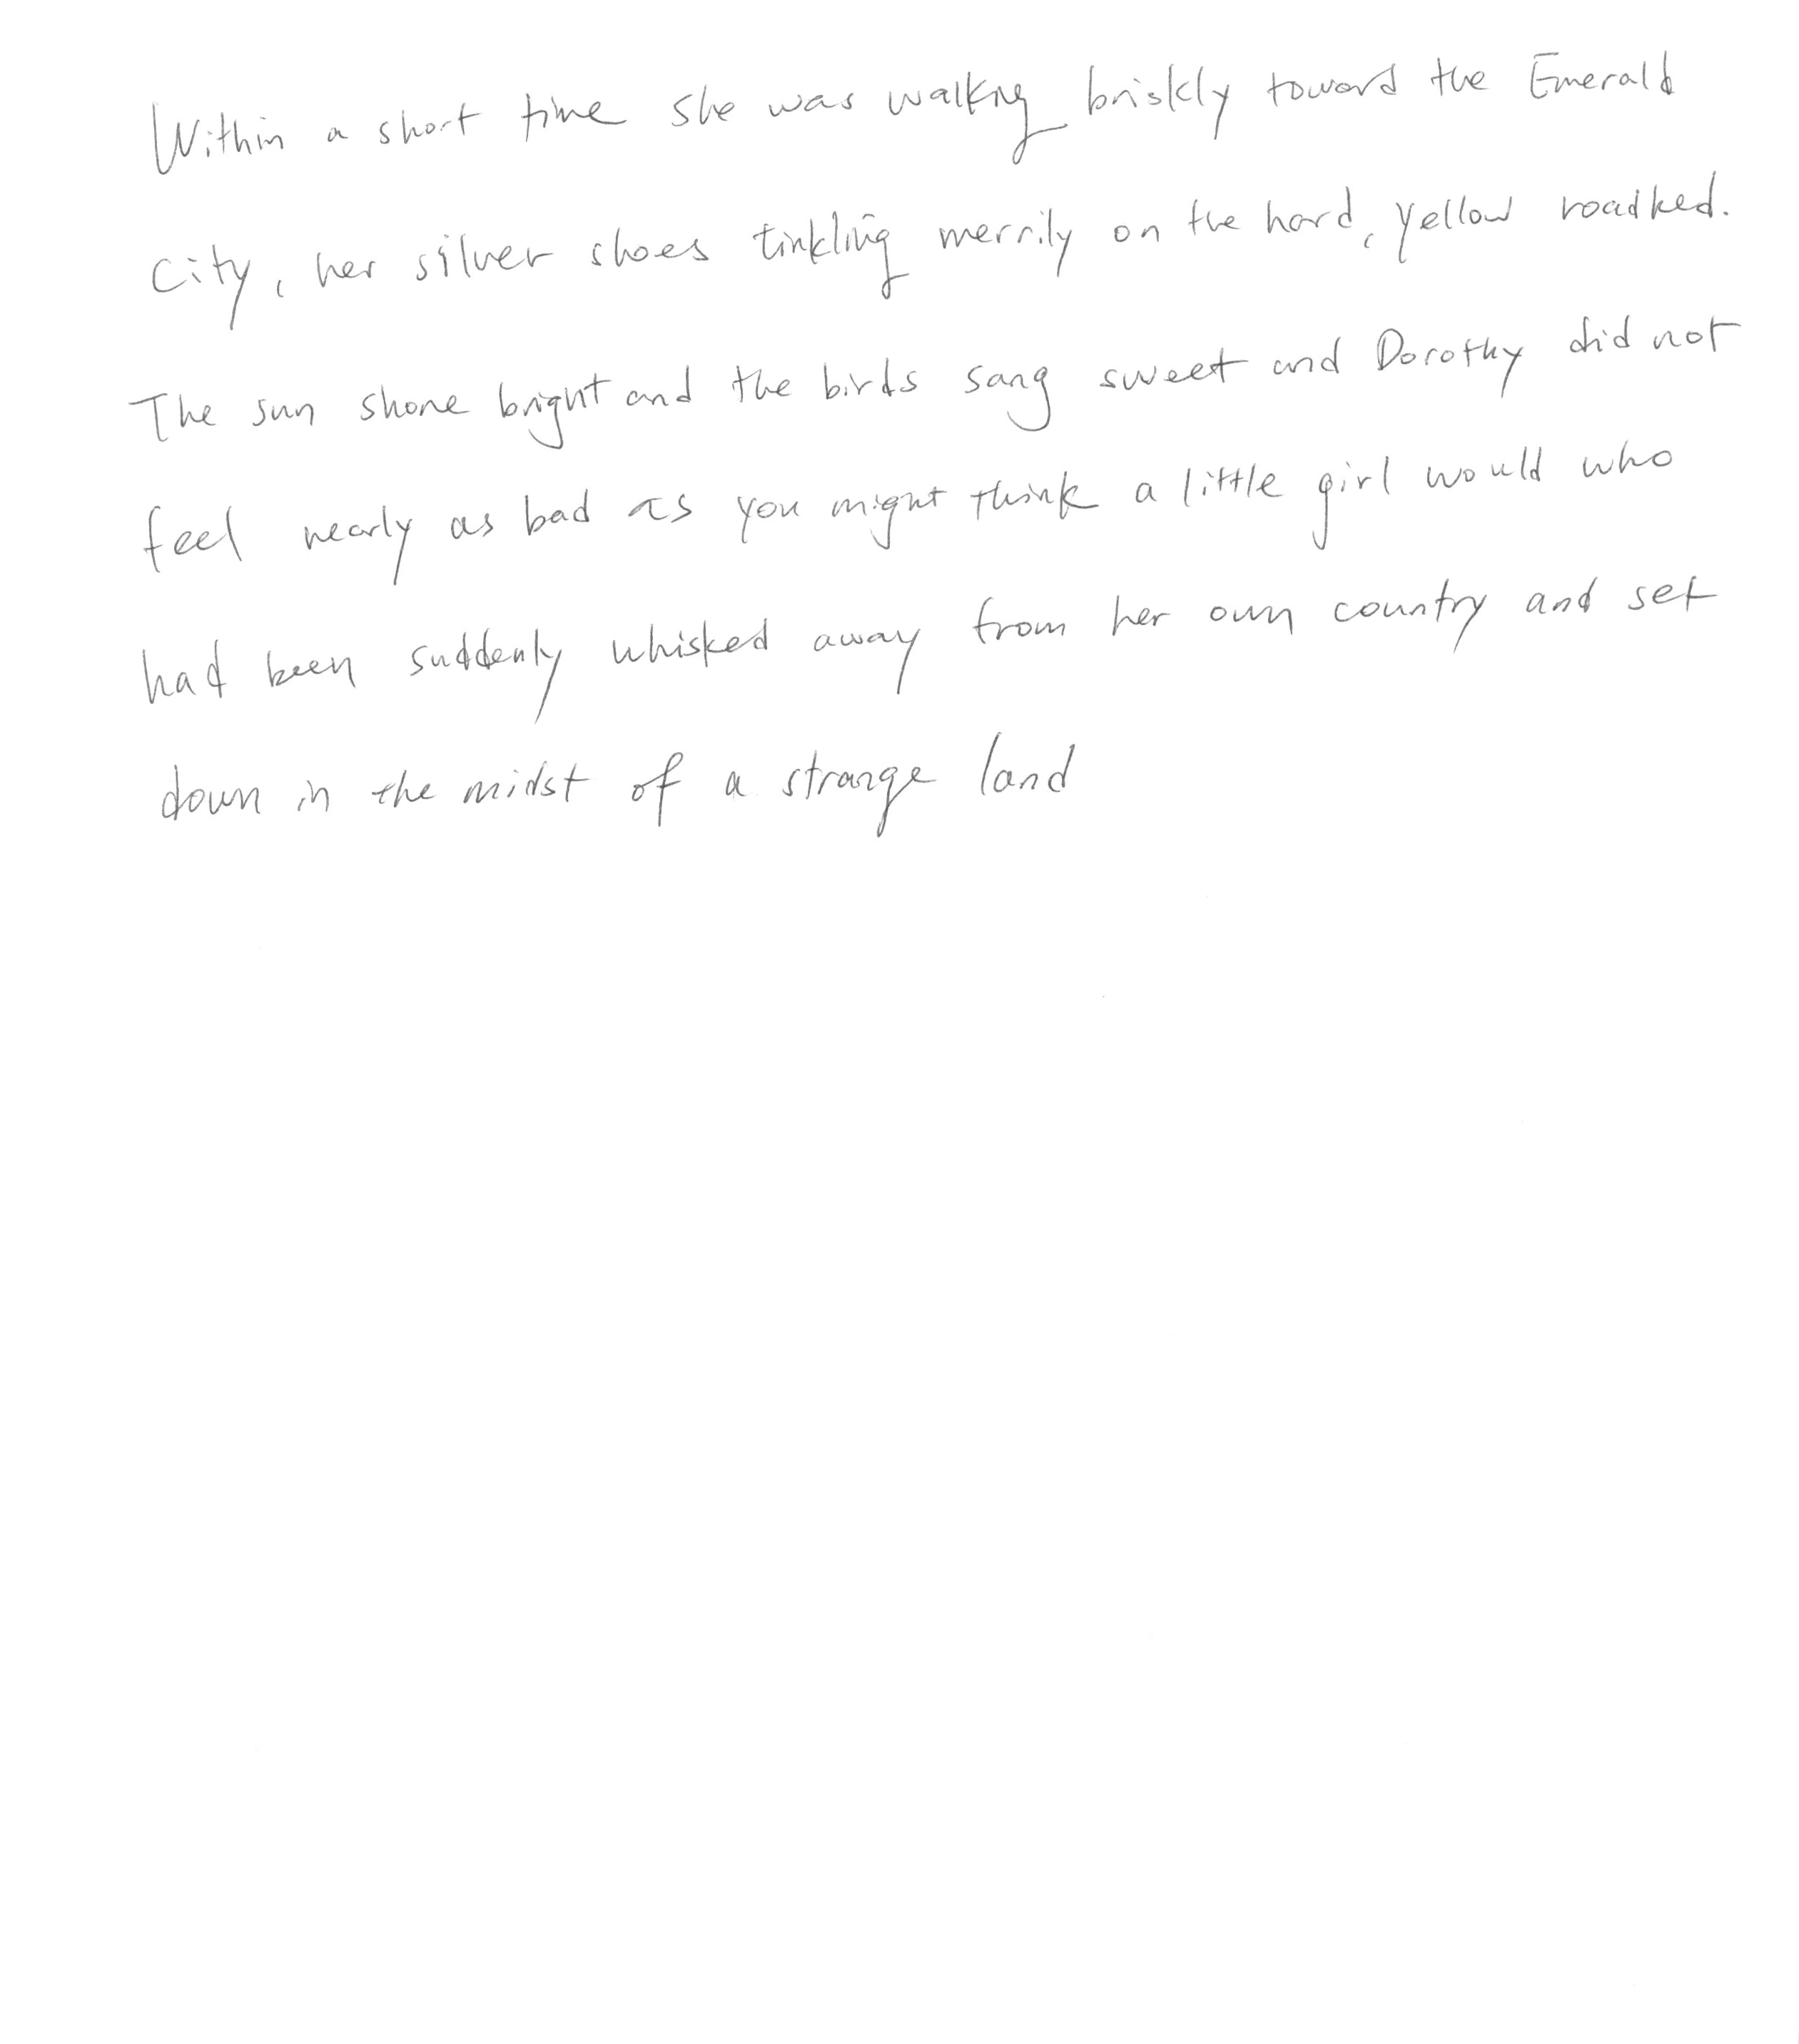 Within a short time she was walking briskly toward the Emerald
City, her silver shoes tinkling merrily on the hard, yellow roadbed.
The sun shone bright and the birds sang sweet and Dorothy did not
feel nearly as bad as you might think a little girl would who
had been suddenly whisked away from her own country and set
down in the midst of a strange land